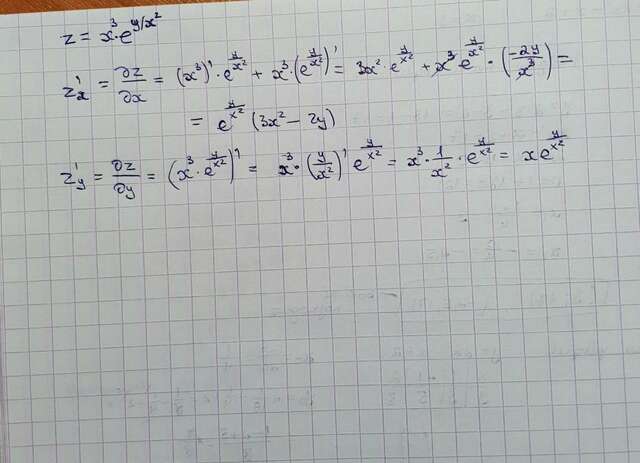 z = x³·e^(y/x²)
z'ₓ = ∂z/∂x = (x³)'·e^(y/x²) + x³·(e^(y/x²))' = 3x²·e^(y/x²) + x³·e^(y/x²)·(-2y/x³) =
= e^(y/x²) (3x² - 2y)
z'ᵧ = ∂z/∂y = (x³·e^(y/x²))' = x³·(y/x²)' e^(y/x²) = x³·1/x²·e^(y/x²) = xe^(y/x²)